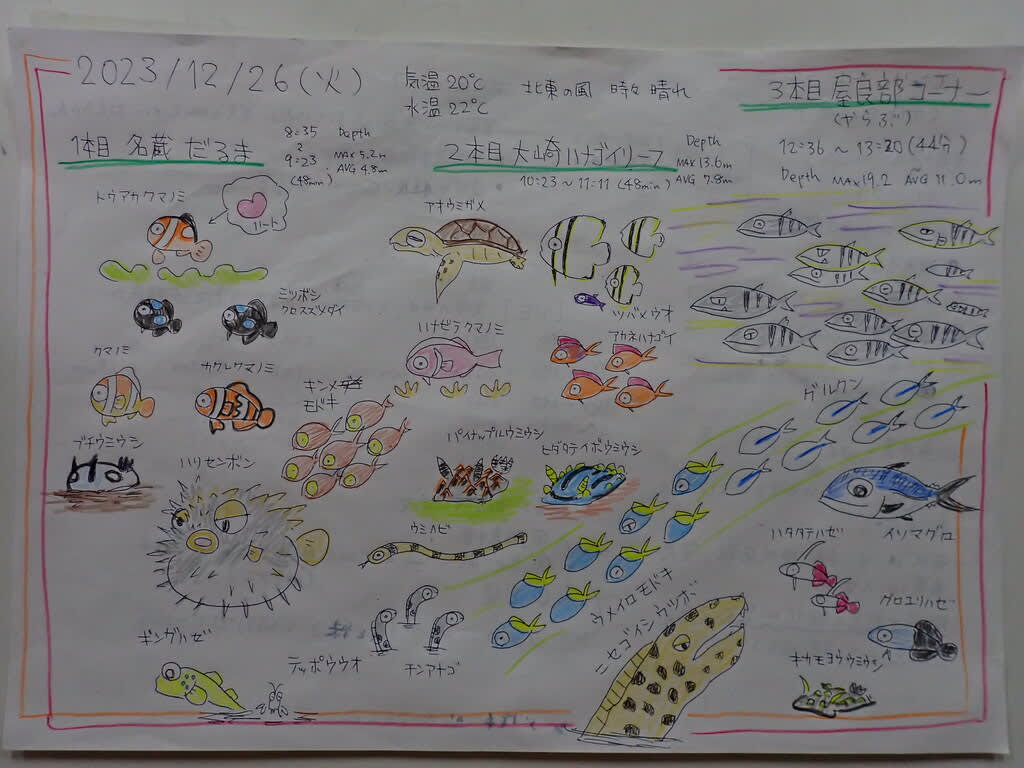 2023/12/26(火)
気温20℃
水温22℃
北東の風 時々晴れ
1本目 名蔵 だるま
8:35
2
9:23
(48min)
Depth
MAX 5.2m
AVG 4.8m
2本目 大崎ハナゴイリーフ
10:23~11:11 (48min)
Depth
MAX 13.6m
AVG 7.8m
3本目 屋良部コーナー
(やらぶ)
12:36~13:20(44分)
Depth MAX19.2 AVG 11.0m
トウアカクマノミ
ハート
ミツボシ
クロスズメダイ
クマノミ
カクレクマノミ
キンメ
モドキ
ブチウミウシ
ハリセンボン
ギンガハゼ
テッポウウオ
アオウミガメ
ツバメウオ
ハナビラクマノミ
アカネハナゴイ
パイナップルウミウシ
ヒダタテイボウミウシ
ウミヘビ
チンアナゴ
ウメイロモドキ
ニセゴイシウツボ
グルクン
イソマグロ
ハタタテハゼ
クロユリハゼ
キカモヨウウミウシ